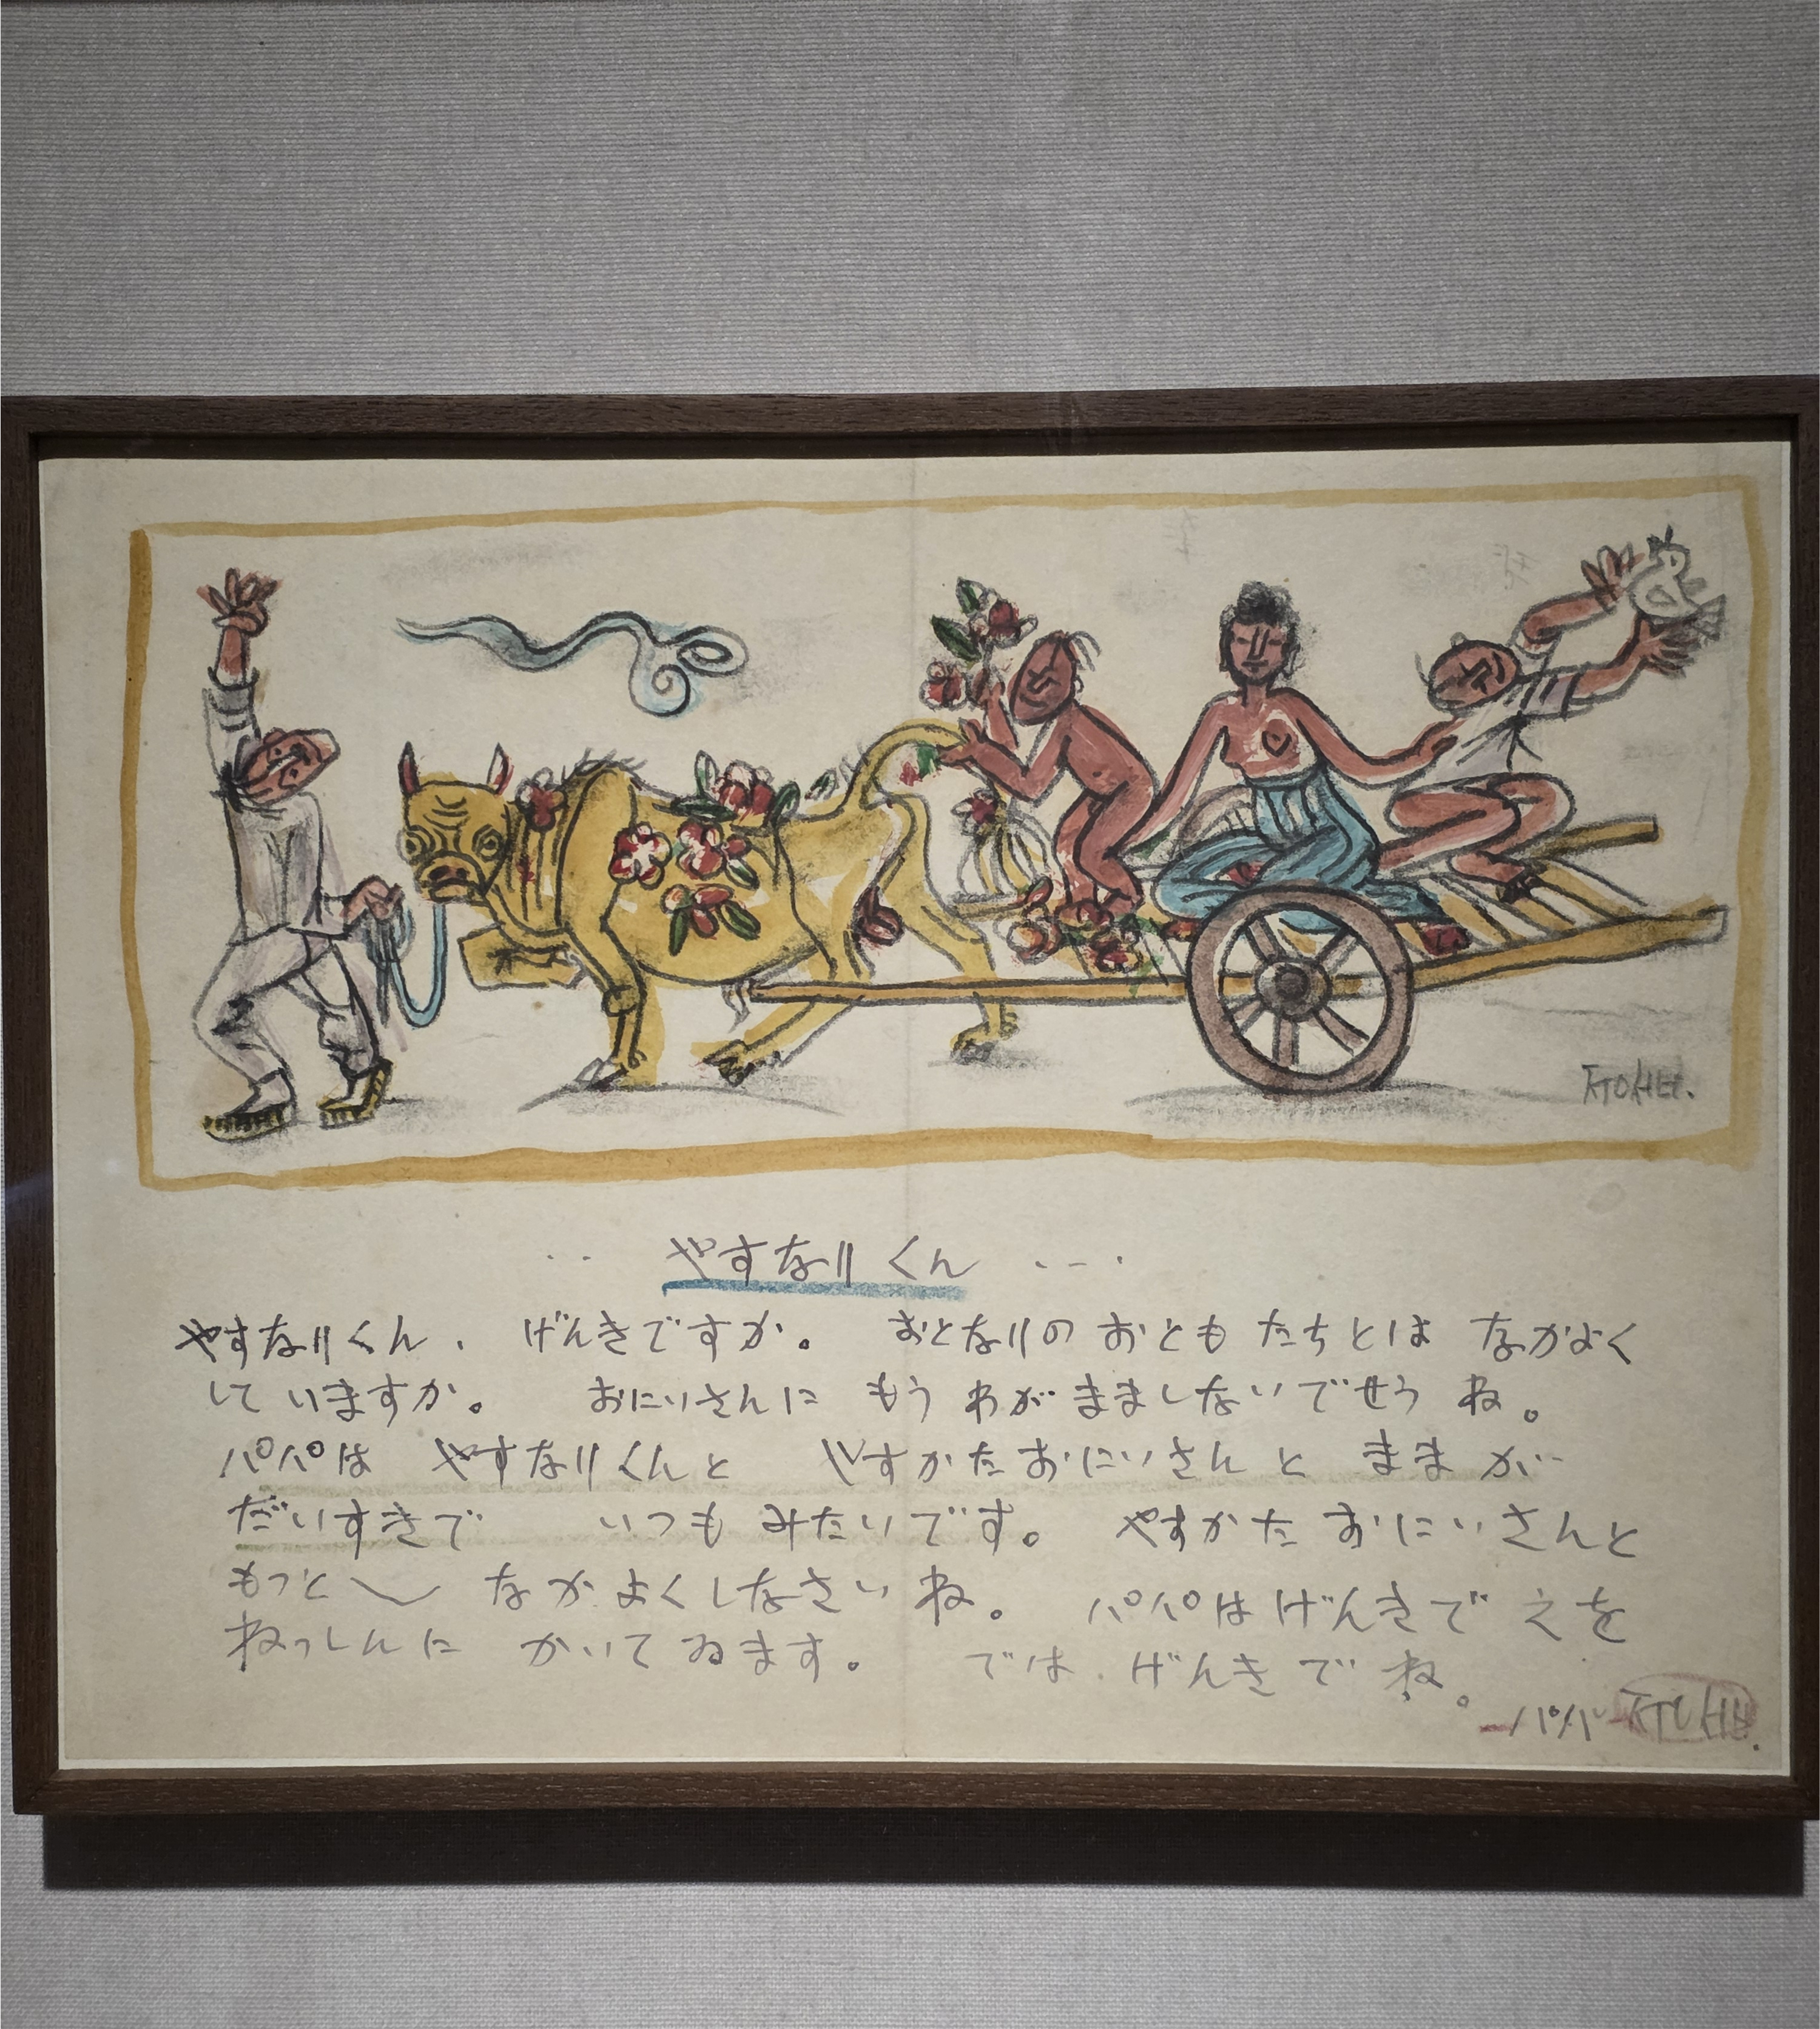 ㅈㅜㅇㅅㅓㅂ
やすなりくん
やすなりくん、げんきですか。 おとなりの おともたちとは なかよく
して いますか。 おにいさんに もう わがまましないでせう ね。
パパは やすなりくんと やすかたおにいさんと ままが
だいすきで いつも みたいです。 やすかた おにいさんと
もっと〳〵 なかよくしなさい ね。 パパは げんきで えを
ねっしんに かいて ゐます。 では、げんきで ね。
パパ ㅈㅜㅇㅅㅓㅂ